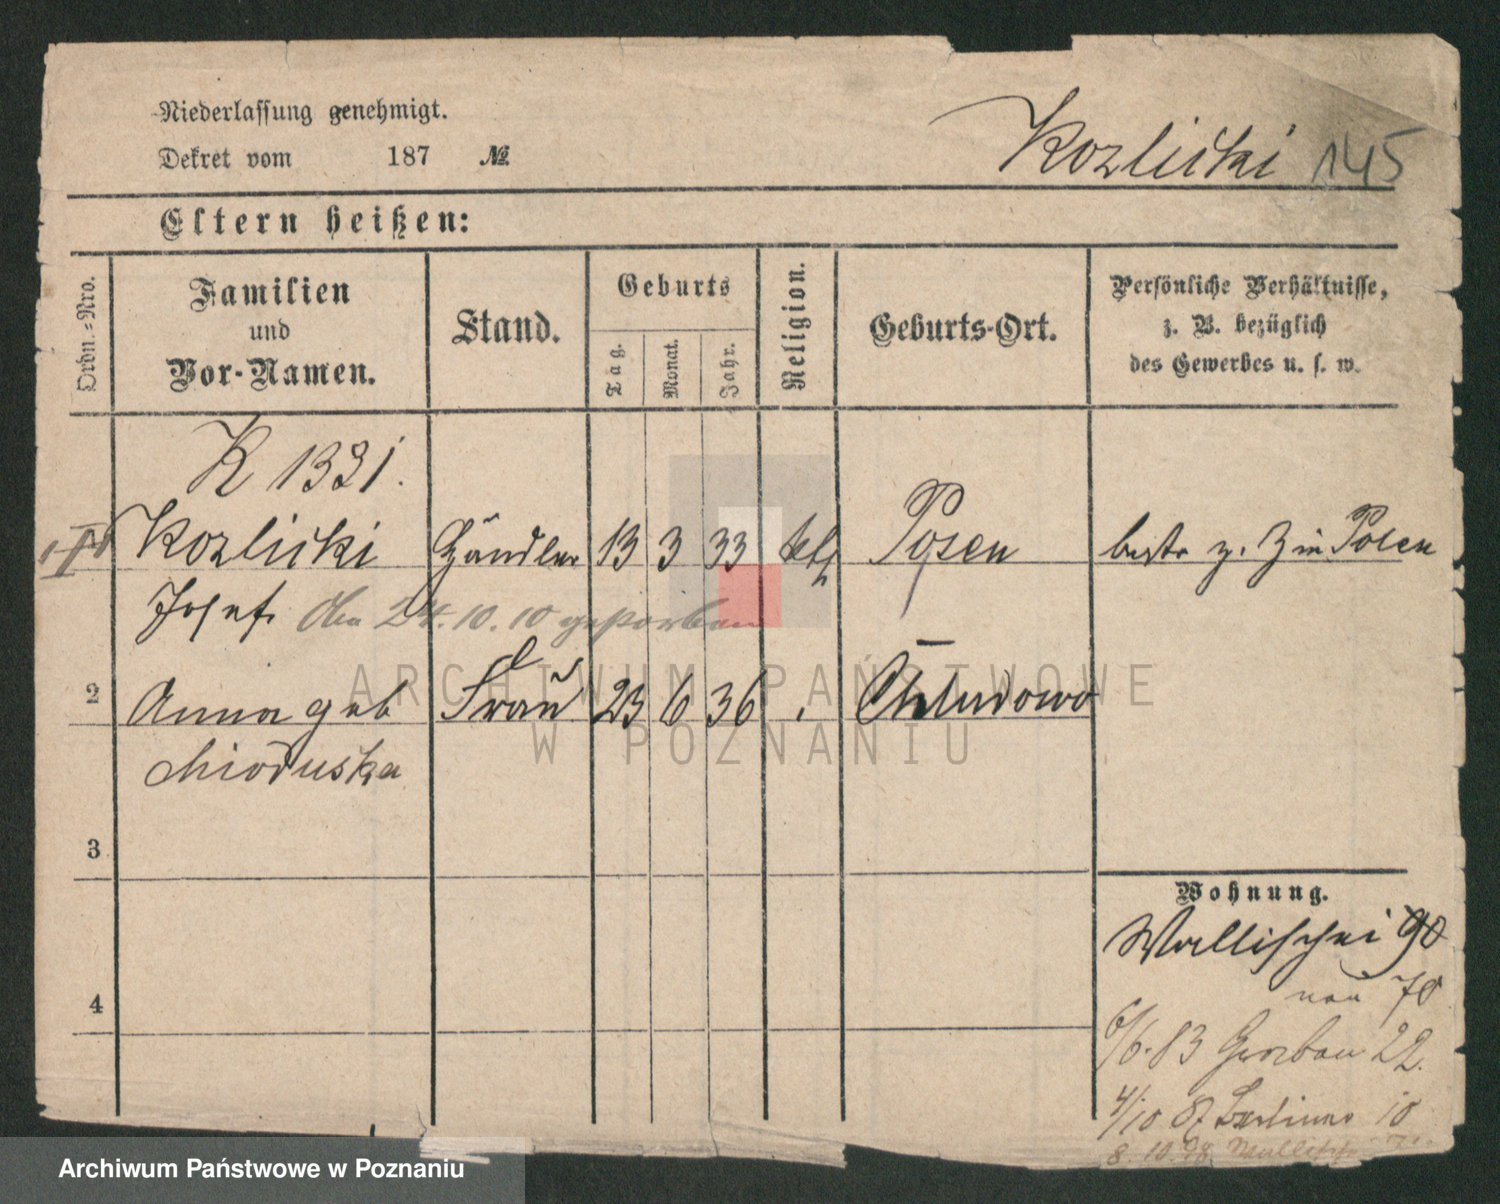 Niederlassung genehmigt.
Dekret vom 187 №
Kozlicki 145
Eltern heißen:
Ordn.-Nro.
Familien
und
Vor-Namen.
Stand.
Geburts
Tag.
Monat.
Jahr.
Religion.
Geburts-Ort.
Persönliche Verhältnisse,
z. B. bezüglich
des Gewerbes u. s. w.
K 1331.
Kozlicki Händler 13 3 33 kath Posen
z. Z in Posen
Josef. 24.10.10 gestorben
2 Anna geb Frau 23 6 36 Chludowo
Mioduska
3
4
Wohnung.
Wallischei 90
neu 70
6/6.83 Gerberdamm 22.
4/10 87 10
8.10.98 Wallischei
ARCHIWUM PAŃSTWOWE
W POZNANIU
Archiwum Państwowe w Poznaniu